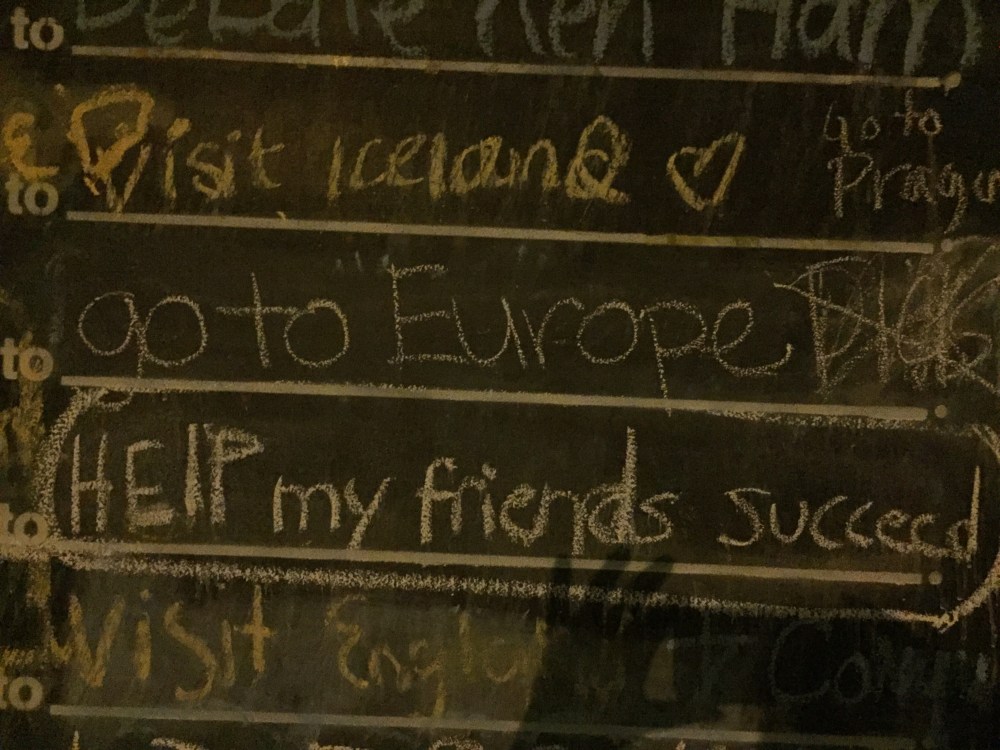 to Debate Ken Ham
to Visit Iceland
go to
Pragu
to go to Europe
to HELP my friends succeed
to Visit